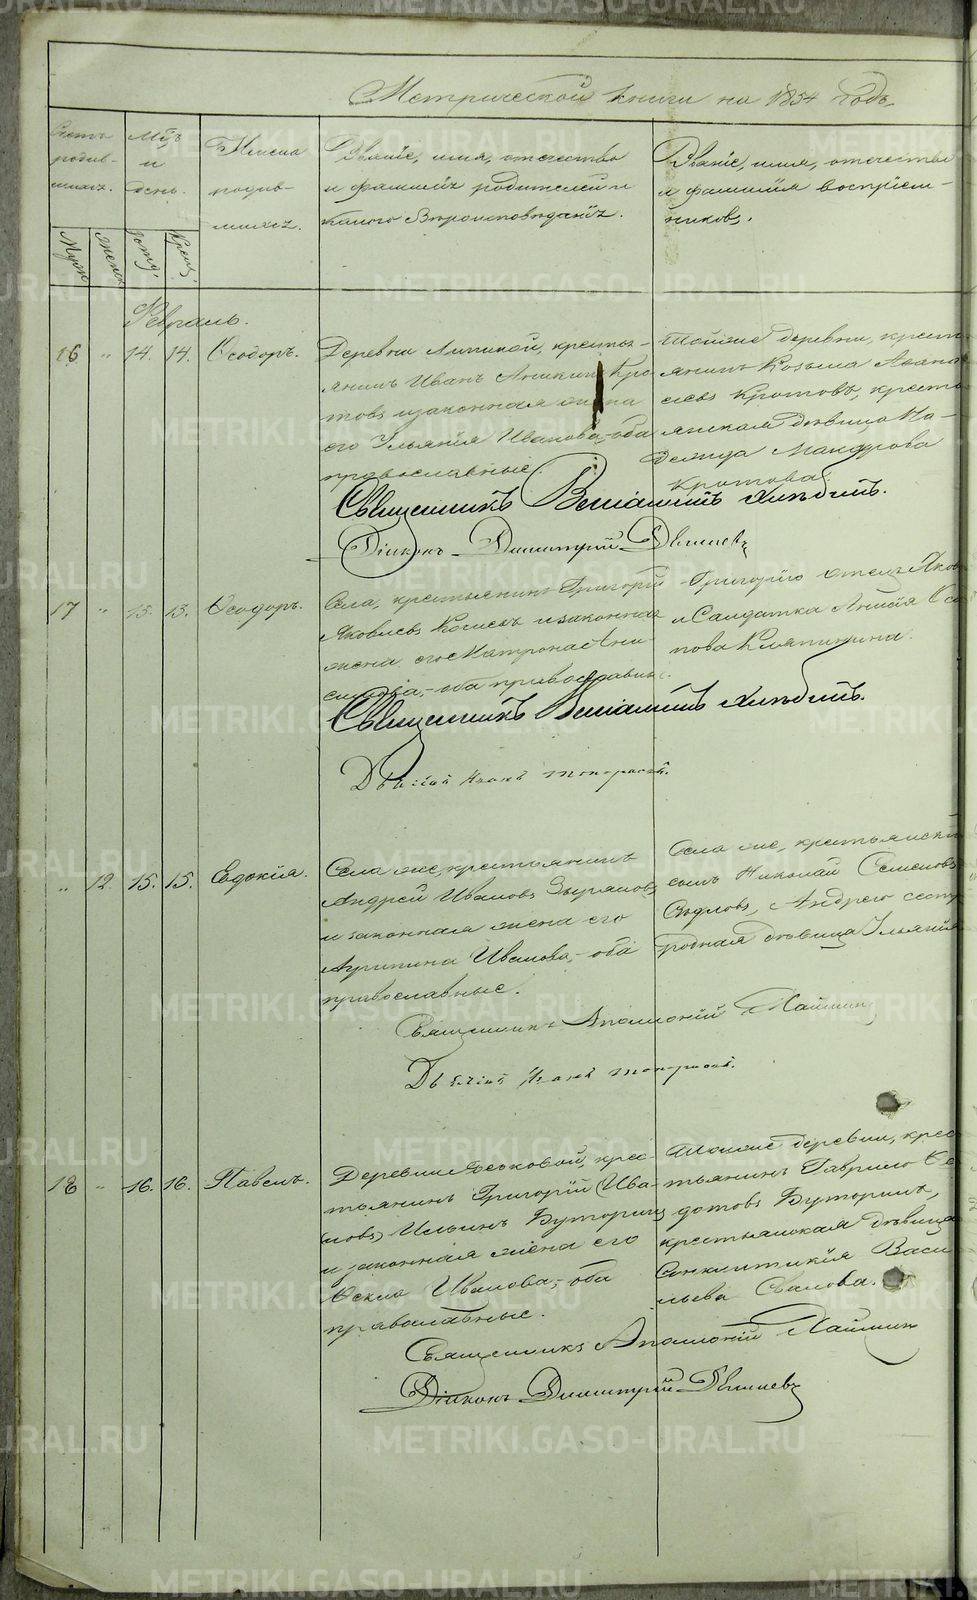 Метрической книги на 1854 годъ
Счетъ родив-шихся.
Мѣсяцъ и день.
Имена родив-шихся.
Званіе, имя, отечество
и фамилія родителей и
какого вѣроисповѣданія.
Званіе, имя, отечество
и фамилія воспріем-
никовъ.
Муж.
Женск.
рожд.
Крещ.
Февраль.
16 " 14. 14. Ѳеодоръ.
Деревни Липиной, кресть-
янинъ Иванъ Аникинъ Кро
товъ и законная жена
его Ульянія Иванова, оба
православные
Тойже деревни, крест
янинъ Козьма Аѳана
сьевъ Кротовъ, кресть
янская дѣвица На
дежда
Кротова
Священникъ Веніаминъ Хлѣбинъ.
Діаконъ Димитрій
17 " 15. 15. Ѳеодоръ.
Села, крестьянинъ Григорій
Яковлевъ и законная
жена его Матрона Они
симова, оба православные.
Григорію отецъ Яков
и Салдатка Ѳео
пова Кляпинина.
Священникъ Веніаминъ Хлѣбинъ.
Дьячекъ Иванъ
" 12. 15. 15. Евдокія.
Села же, крестьянинъ
Андрей Ивановъ Зыряновъ
и законная жена его
Агрипина Иванова, оба
православные.
Села же, крестьянскій
сынъ Николай Семеновъ
Андрею сест
родная дѣвица Ульянія
Священникъ Аполлоній
Дьячекъ Иванъ
18 " 16. 16. Павелъ.
Деревни крес-
тьянинъ Григорій (Ива-
новъ) Ильинъ Буторинъ
и законная жена его
Ѳекла Иванова, оба
православные.
Тойже деревни, крес
тьянинъ Гаврило Ѳе
дотовъ Буторинъ,
крестьянская дѣвица
Синклитикія Васи
льева
Священникъ Аполлоній
Діаконъ Димитрій
METRIKI.GASO-URAL.RU